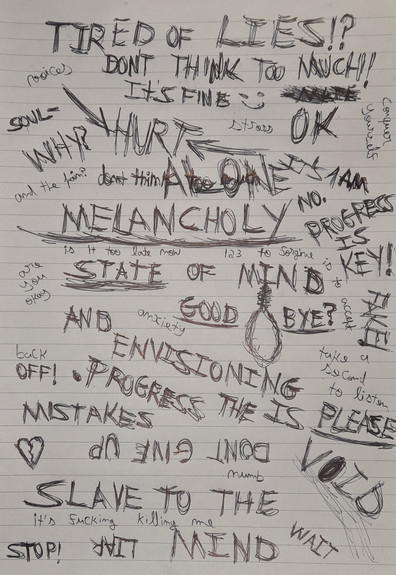 TIRED OF LIES!?
DONT THINK TOO MUCH!!
voices
IT'S FINE :)
SOUL-
HURT
stress
OK
conquer yourself
WHY?
and the pain?
dont think too
ALONE
IT'S 1 AM
NO.
PROGRESS
IS
KEY!
MELANCHOLY
is it too late now
123 to
are
you
okay
STATE OF MIND
is it
accept
FAKE!
AND
anxiety
GOOD BYE?
back
OFF!
ENVISIONING
take a
second
to listen
PROGRESS THE IS PLEASE
MISTAKES
DONT GIVE UP
numb
VOID
SLAVE TO THE
it's fucking killing me
STOP!
WAIT
MIND
WAIT